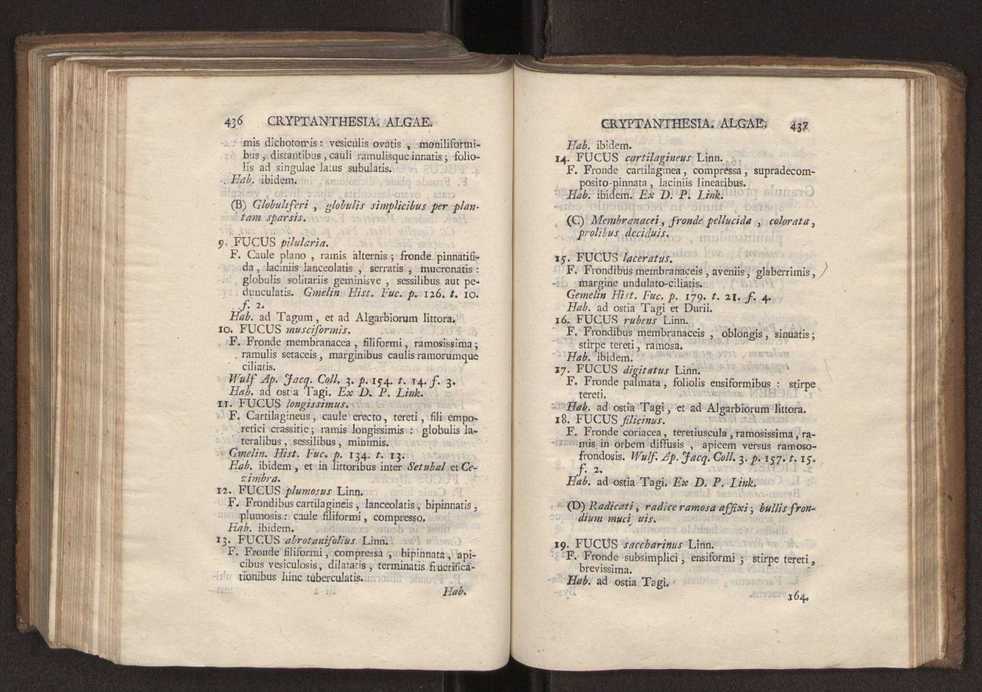 436 CRYPTANTHESIA. ALGAE.
mis dichotomis: vesiculis ovatis , moniliformi-
bus , distantibus , cauli ramulisque innatis ; folio-
lis ad singulae latus subulatis.
Hab. ibidem.
(B) Globuliferi , globulis simplicibus per plan-
tam sparsis.
9. FUCUS pilularia.
F. Caule plano , ramis alternis ; fronde pinnatifi-
da , laciniis lanceolatis , serratis , mucronatis :
globulis solitariis geminisve , sessilibus aut pe-
dunculatis. Gmelin Hist. Fuc. p. 126. t. 10.
f. 2.
Hab. ad Tagum , et ad Algarbiorum littora.
10. FUCUS musciformis.
F. Fronde membranacea , filiformi , ramosissima ;
ramulis setaceis , marginibus caulis ramorumque
ciliatis.
Wulf Ap. Jacq. Coll. 3. p. 154. t. 14. f. 3.
Hab. ad ostia Tagi. Ex D. P. Link.
11. FUCUS longissimus.
F. Cartilagineus , caule erecto , tereti , fili empo-
retici crassitie ; ramis longissimis : globulis la-
teralibus , sessilibus , minimis.
Gmelin. Hist. Fuc. p. 134. t. 13.
Hab. ibidem , et in littoribus inter Setubal et Ce-
zimbra.
12. FUCUS plumosus Linn.
F. Frondibus cartilagineis , lanceolatis , bipinnatis ,
plumosis : caule filiformi , compresso.
Hab. ibidem.
13. FUCUS abrotanifolius Linn.
F. Fronde filiformi , compressa , bipinnata , api-
cibus vesiculosis , dilatatis , terminatis fructifica-
tionibus hinc tuberculatis.
Hab.
CRYPTANTHESIA. ALGAE. 437
Hab. ibidem.
14. FUCUS cartilagineus Linn.
F. Fronde cartilaginea , compressa , supradecom-
posito-pinnata , laciniis linearibus.
Hab. ibidem. Ex D. P. Link.
(C) Membranacei , fronde pellucida , colorata ,
prolibus deciduis.
15. FUCUS laceratus.
F. Frondibus membranaceis , aveniis , glaberrimis ,
margine undulato-ciliatis.
Gemelin Hist. Fuc. p. 179. t. 21. f. 4.
Hab. ad ostia Tagi et Durii.
16. FUCUS rubens Linn.
F. Frondibus membranaceis , oblongis , sinuatis ;
stirpe tereti , ramosa.
Hab. ibidem.
17. FUCUS digitatus Linn.
F. Fronde palmata , foliolis ensiformibus : stirpe
tereti.
Hab. ad ostia Tagi , et ad Algarbiorum littora.
18. FUCUS filicinus.
F. Fronde coriacea , teretiuscula , ramosissima , ra-
mis in orbem diffusis , apicem versus ramoso-
frondosis. Wulf. Ap. Jacq. Coll. 3. p. 157. t. 15.
f. 2.
Hab. ad ostia Tagi. Ex D. P. Link.
(D) Radicati , radice ramosa affixi ; bullis fron-
dium muci uis.
19. FUCUS saccharinus Linn.
F. Fronde subsimplici , ensiformi ; stirpe tereti ,
brevissima.
Hab. ad ostia Tagi.
164.